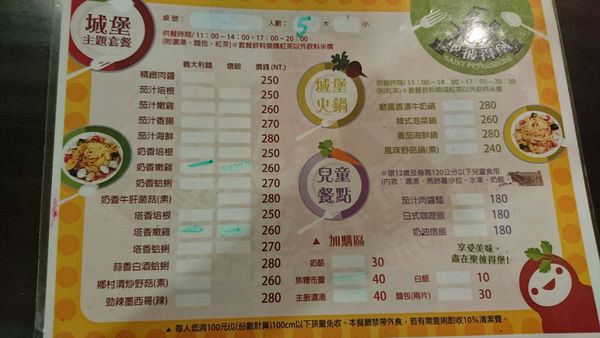 城堡
主題套餐
桌號：
人數：5大 小
供餐時間/ 11：00~14：00、17：00~20：00
(附濃湯、麵包、紅茶)※套餐飲料換購紅茶以外飲料半價
義大利麵 燉飯 價錢(NT.)
精緻肉醬 250
茄汁培根 250
茄汁嫩雞 260
茄汁香腸 260
茄汁海鮮 280
奶香培根 250
奶香嫩雞 260
奶香蛤蜊 260
奶香牛肝菌菇(素) 280
塔香培根 250
塔香嫩雞 260
塔香蛤蜊 260
蒜香白酒蛤蜊 280
鄉村清炒野菇(素) 260
勁辣墨西哥(辣) 280
聖彼得堡
SAINT PETERSBURG
城堡
火鍋
供餐時間/ 11：00~14：00、17：00~20：00
(附紅茶)※套餐飲料換購紅茶以外飲料半價
歐風香濃牛奶鍋 280
韓式泡菜鍋 260
番茄海鮮鍋 280
風味野菇鍋(素) 240
兒童
餐點
※限12歲及身高120公分以下兒童食用
(內容：濃湯、馬鈴薯沙拉、水果、奶酪
茄汁肉醬麵 180
日式咖哩飯 180
奶油燉飯 180
▲ 加購區
奶酪 30
焦糖布蕾 40
白飯 10
主廚濃湯 40
麵包(兩片) 30
享受美味，
盡在聖彼得堡！
▲ 每人低消100元(以份數計算)100cm以下孩童免收。本餐廳禁帶外食，若有需要則酌收10%清潔費。